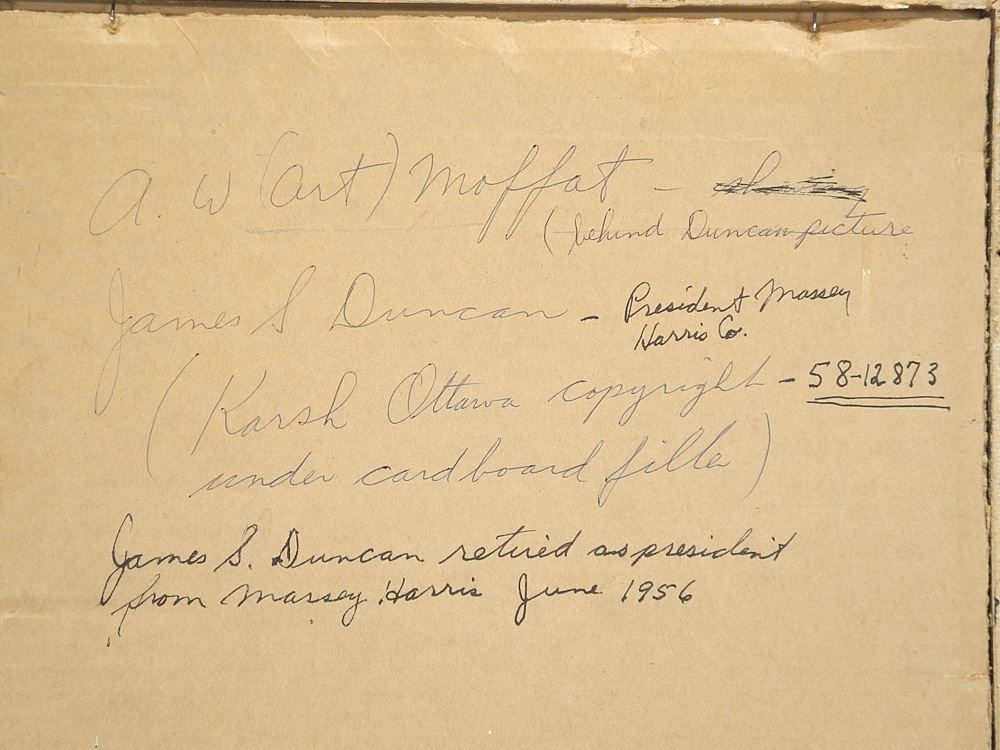 A. W (Art) Moffat -
(behind Duncan picture
James S Duncan - President Massey
Harris Co.
(Karsh Ottawa copyright - 58-12873
under cardboard filler)
James S. Duncan retired as president
from Massey Harris June 1956